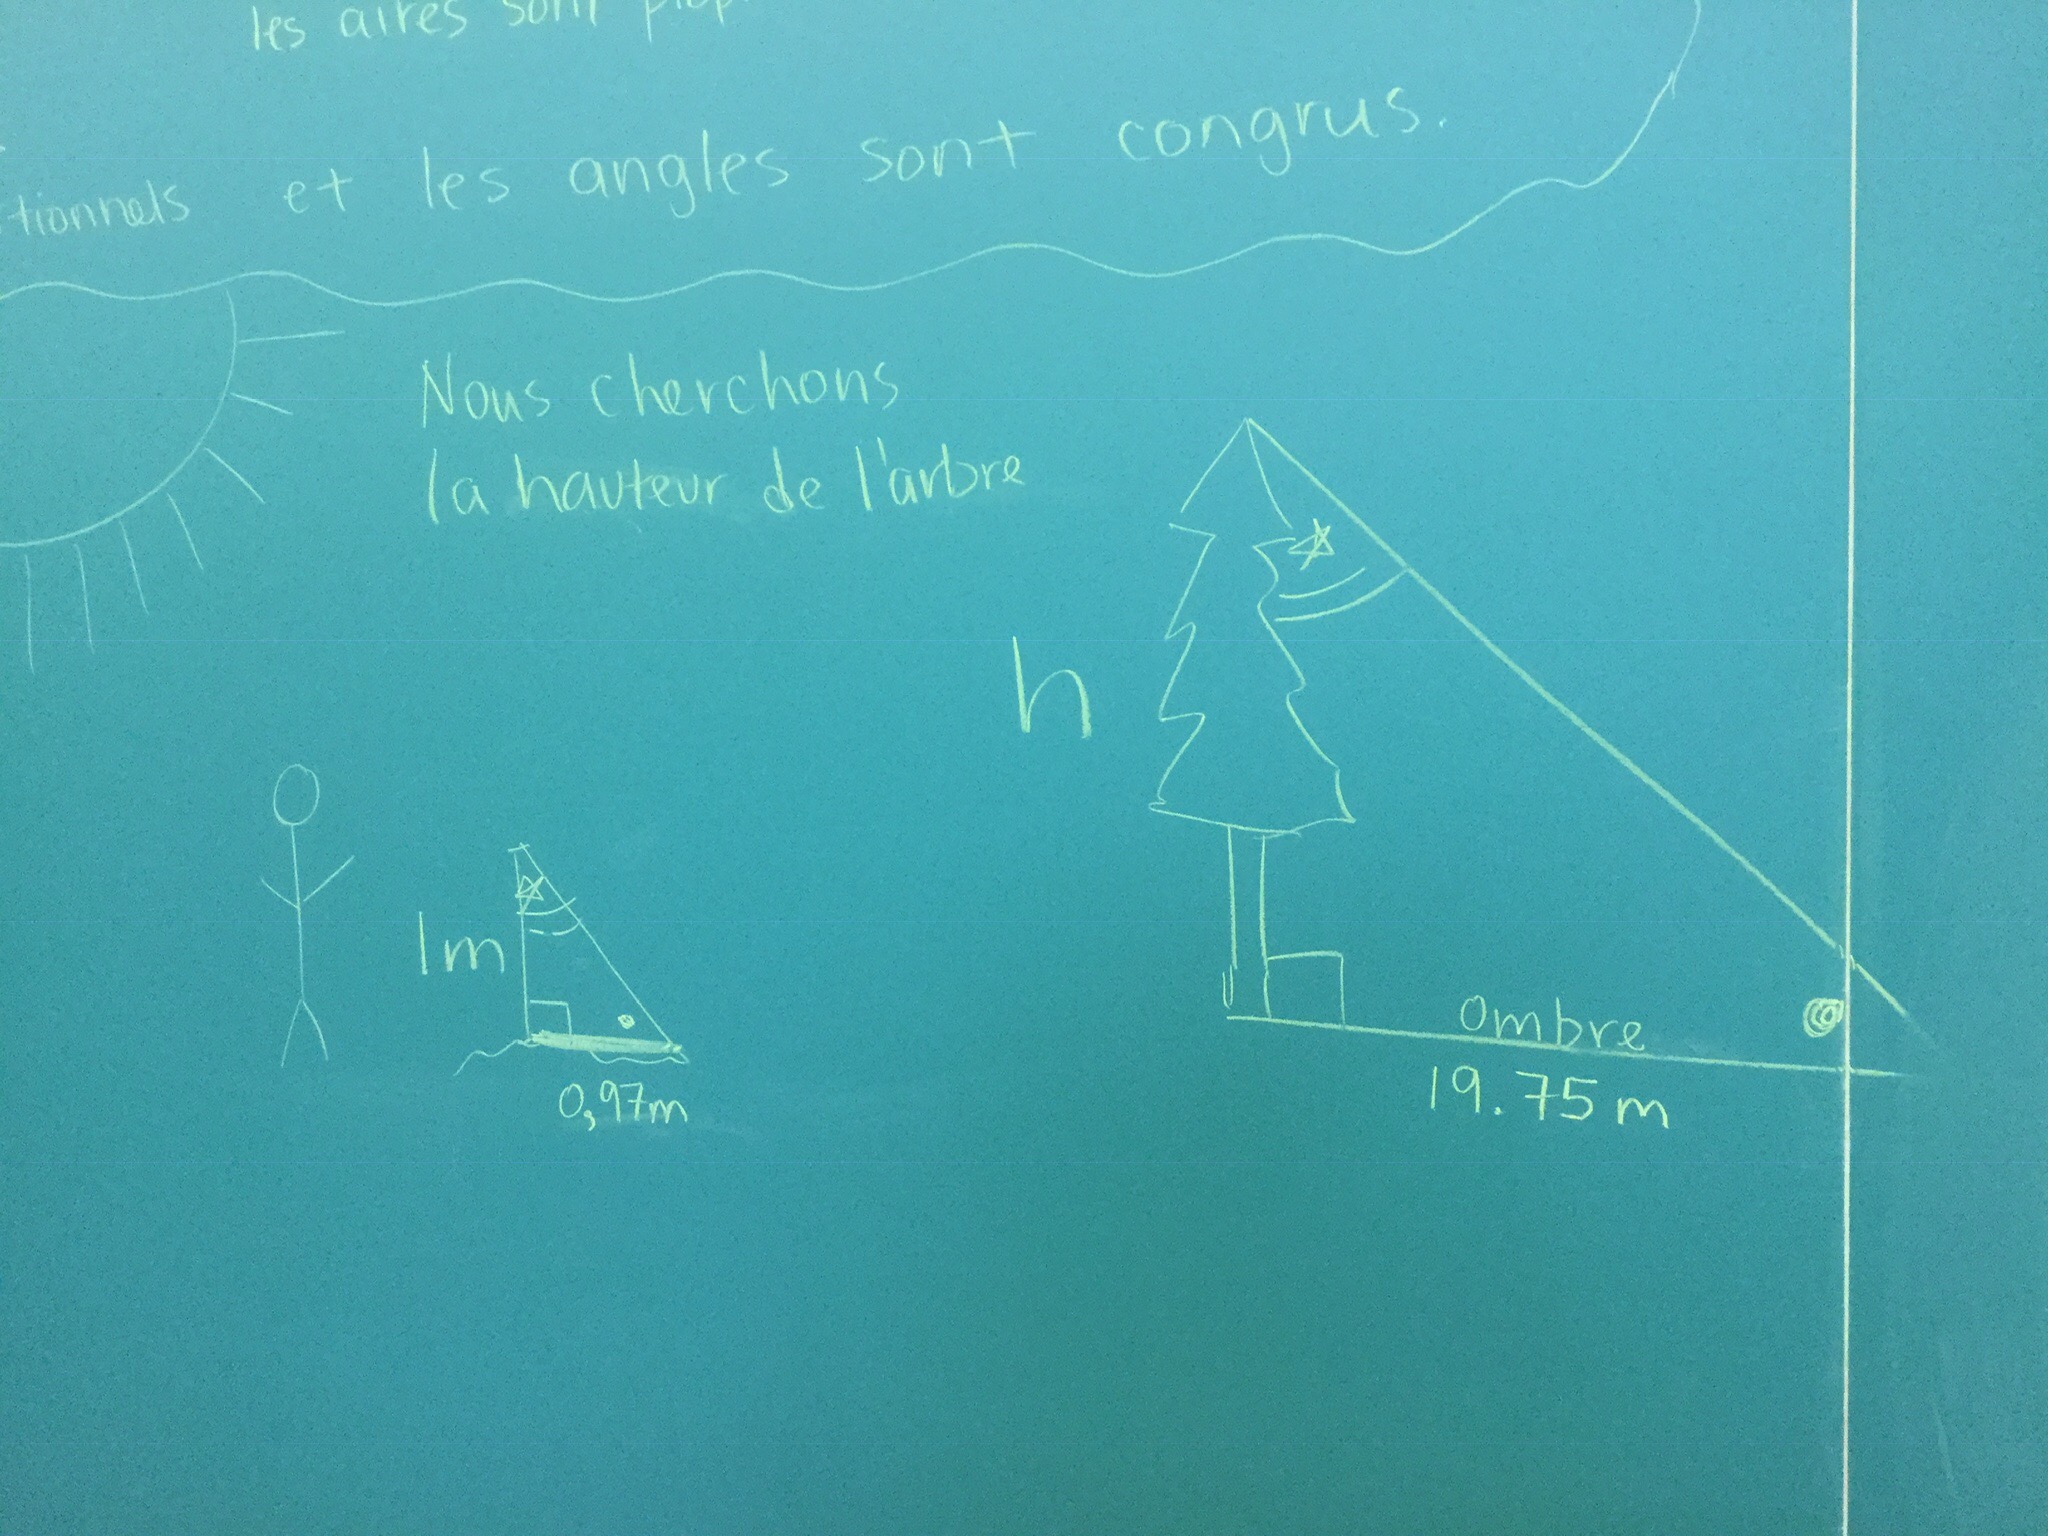 les aires sont prop
tionnels et les angles sont congrus.
Nous cherchons
la hauteur de l'arbre
h
1m
Ombre
0,97m
19.75 m